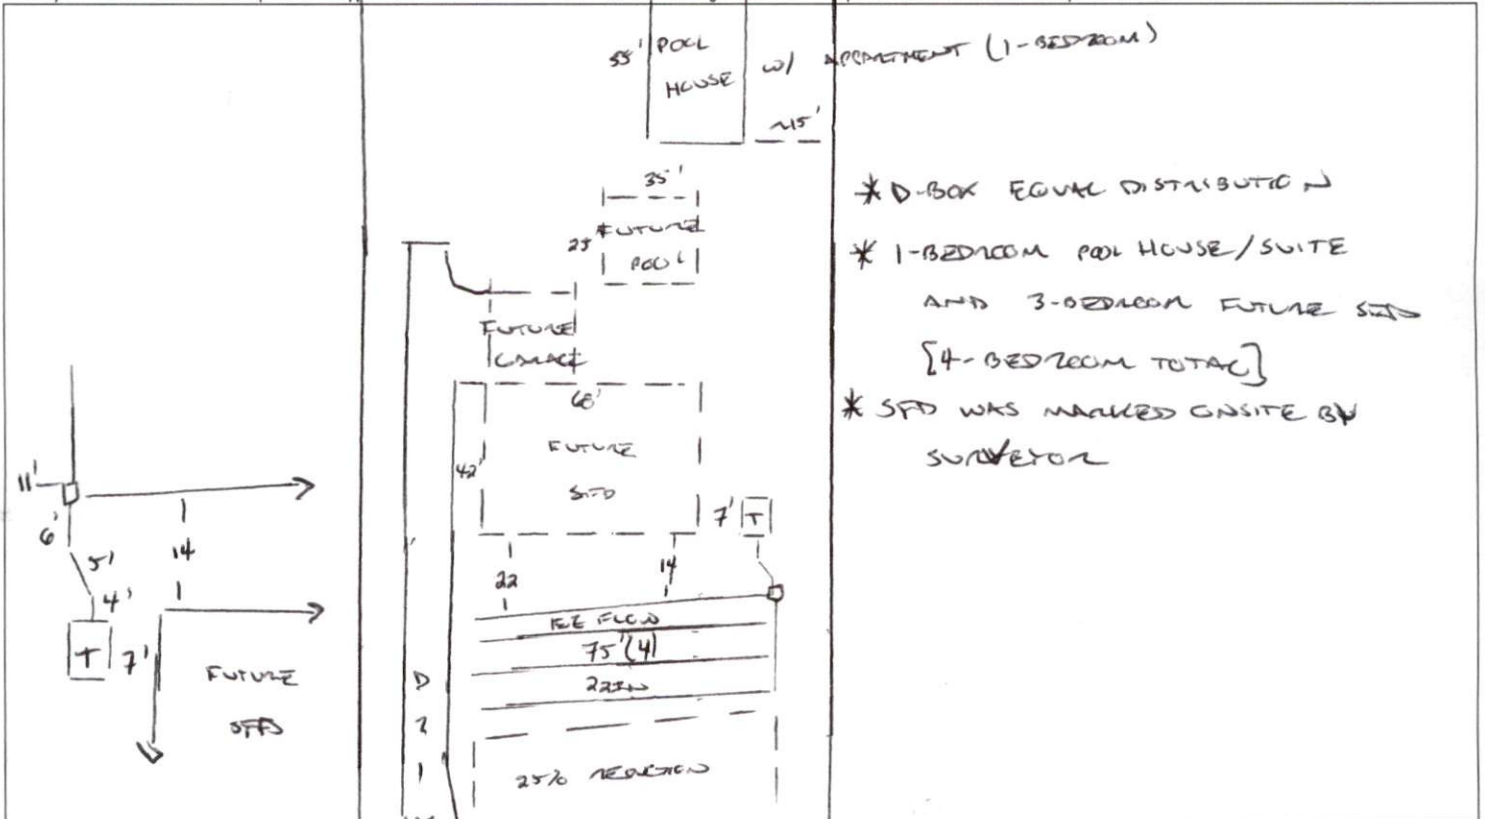 55' POOL
HOUSE
W/ APPARTMENT (1-BEDROOM)
~15'
35'
25
FUTURE
POOL
FUTURE
GARAGE
68'
42'
FUTURE
SFD
7' T
22
14
EZ FLOW
75' (4)
22IN
25% REDUCTION
D
R
I
* D-BOX EQUAL DISTRIBUTION
* 1-BEDROOM POOL HOUSE/SUITE
AND 3-BEDROOM FUTURE SFD
[4-BEDROOM TOTAL]
* SFD WAS MARKED ONSITE BY
SURVEYOR
11'
6'
5'
14
4'
T 7'
FUTURE
SFD